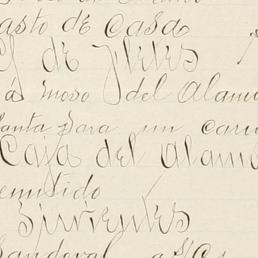 asto de Casa
de Jueves
a moso del Alamo
anta para un carr
Caja del Alamo
emitido
Sirvientes
Sandoval a